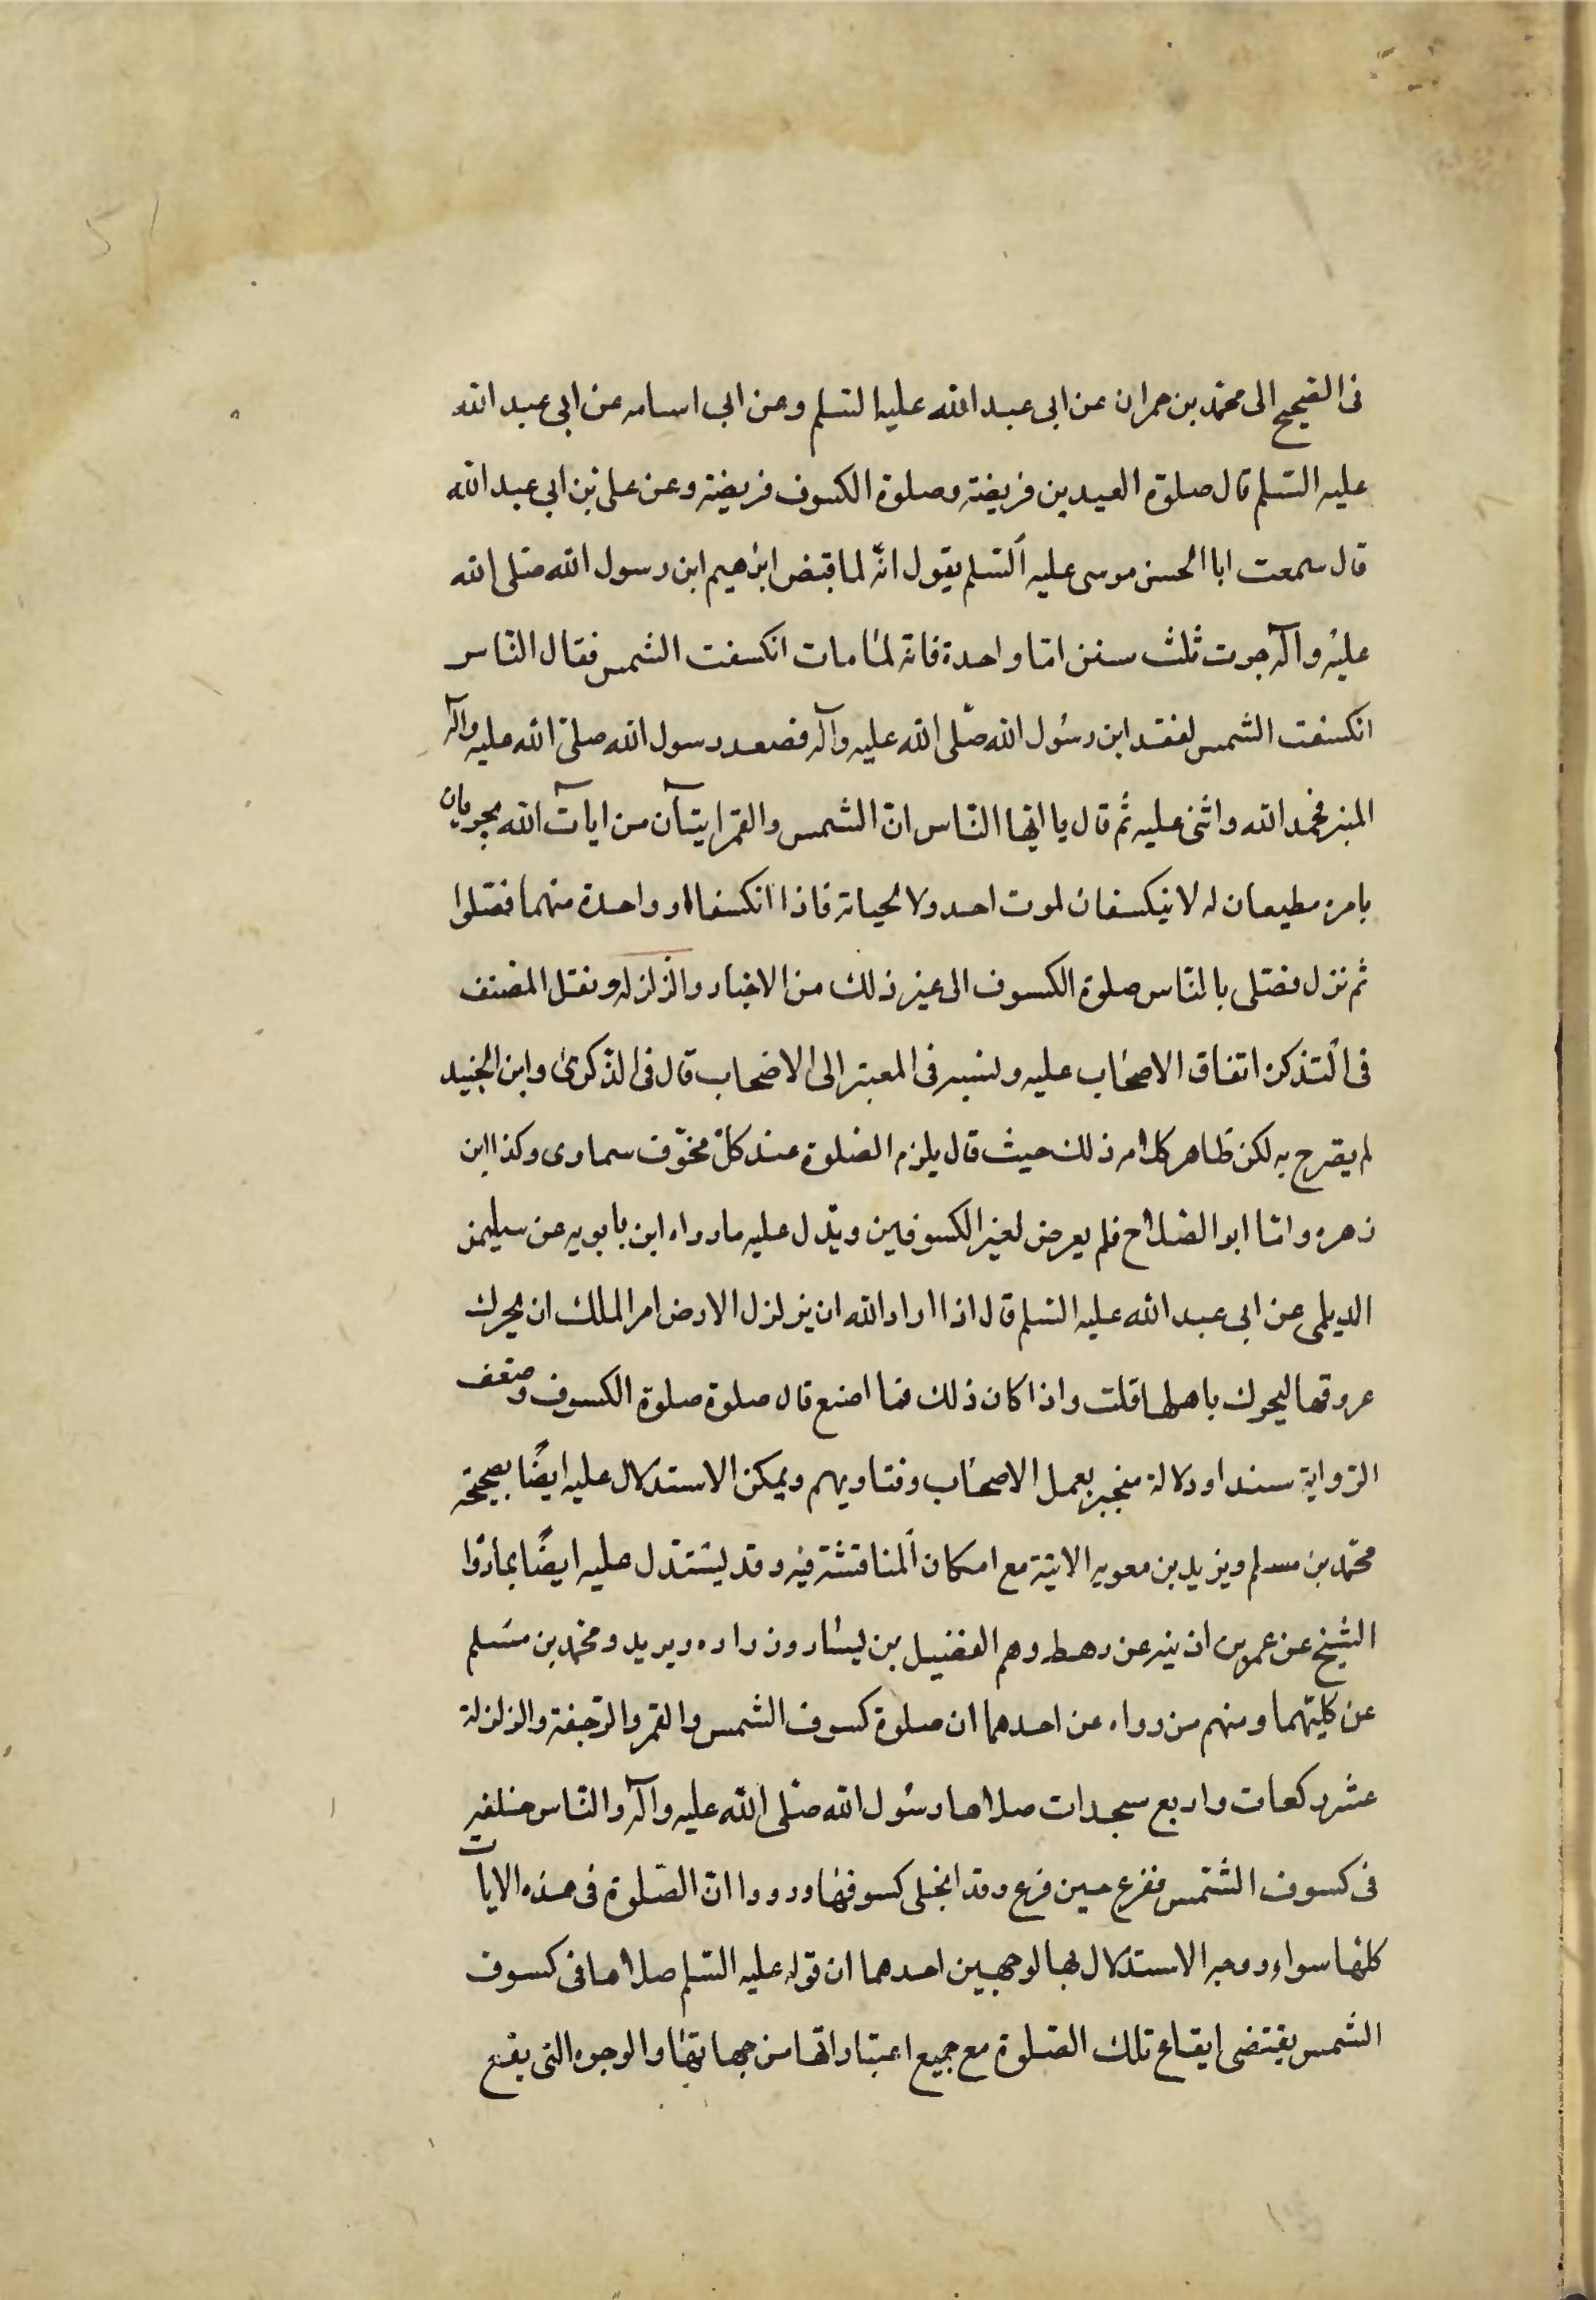 فى الصّحيح الى محمّد بن حمران عن ابى عبد الله عليه السّلم وعن ابى اسامه عن ابى عبد الله
عليه السّلم قال صلوة العيدين فريضة وصلوة الكسوف فريضة وعن على بن ابى عبد الله
قال سمعت ابا الحسن موسى عليه السّلم يقول انّه لما قبض ابرٰهيم ابن رسول الله صلى الله
عليه وآله جرت ثلث سنن امّا واحدة فانه لمّا مات انكسفت الشمس فقال النّاس
انكسفت الشمس لفقد ابن رسُول الله صلّى الله عليه وآله فصعد رسول الله صلى الله عليه وآله
المنبر فحمد الله واثنى عليه ثم قال يا ايّها النّاس انّ الشمس والقمر ايتآن من ايات الله يجريان
بامره مطيعان له لا ينكسفان لموت احد ولا لحياته فاذا انكسفا او واحدة منهما فصّلوا
ثم نزل فصّلى بالنّاس صلوة الكسوف الى غير ذلك من الاخبار والزلزله ونقل المصّنف
فى التّذكره اتفاق الاصحاب عليه ونسبه فى المعتبر الى الاصحاب قال فى الذّكرىٰ وابن الجنيد
لم يصّرح به لكن ظاهر كلامه ذلك حيث قال يلزم الصّلوة عند كلّ مخوّف سماوى وكذا ابن
زهره وامّا ابو الصّلاح فلم يعرض لغير الكسوفين ويدّل عليه ما رواه ابن بابويه عن سليمن
الديلمى عن ابى عبد الله عليه السّلم قال اذا اراد الله ان يزلزل الارض امر الملك ان يحرك
عروقها ليحرك باهلها قلت واذا كان ذلك فما اصنع قال صلوة صلوة الكسوف وضعف
الرّواية سندا ودلالة منجبر بعمل الاصحاب وفتاويهم ويمكن الاستدلال عليه ايضًا بصحيحة
محمّد بن مسلم ويزيد بن معويه الاتية مع امكان المناقشة فيه وقد يستدّل عليه ايضًا بما روٰا
الشيخ عن عمر بن اذينه عن رهط وهم الفضيل بن يسار وزراره وبريد ومحمّد بن مسلم
عن كليهما ومنهم من رواه عن احدهما ان صلوة كسوف الشمس والقمر والرّجفة والزلزلة
عشر ركعات واربع سجدات صلاها رسُول الله صلّى الله عليه وآله والنّاس خلفه
فى كسوف الشّمس ففرغ حين فرغ وقد انجلى كسوفها ورووا انّ الصّلوة فى هذه الايات
كلها سواء ووجه الاستدلال بها لوجهين احدهما ان قوله عليه السّلم صلاها فى كسوف
الشمس يقتضى ايقاع تلك الصّلوة مع جميع اعتباراتها من جهاتها والوجوه التى يقع